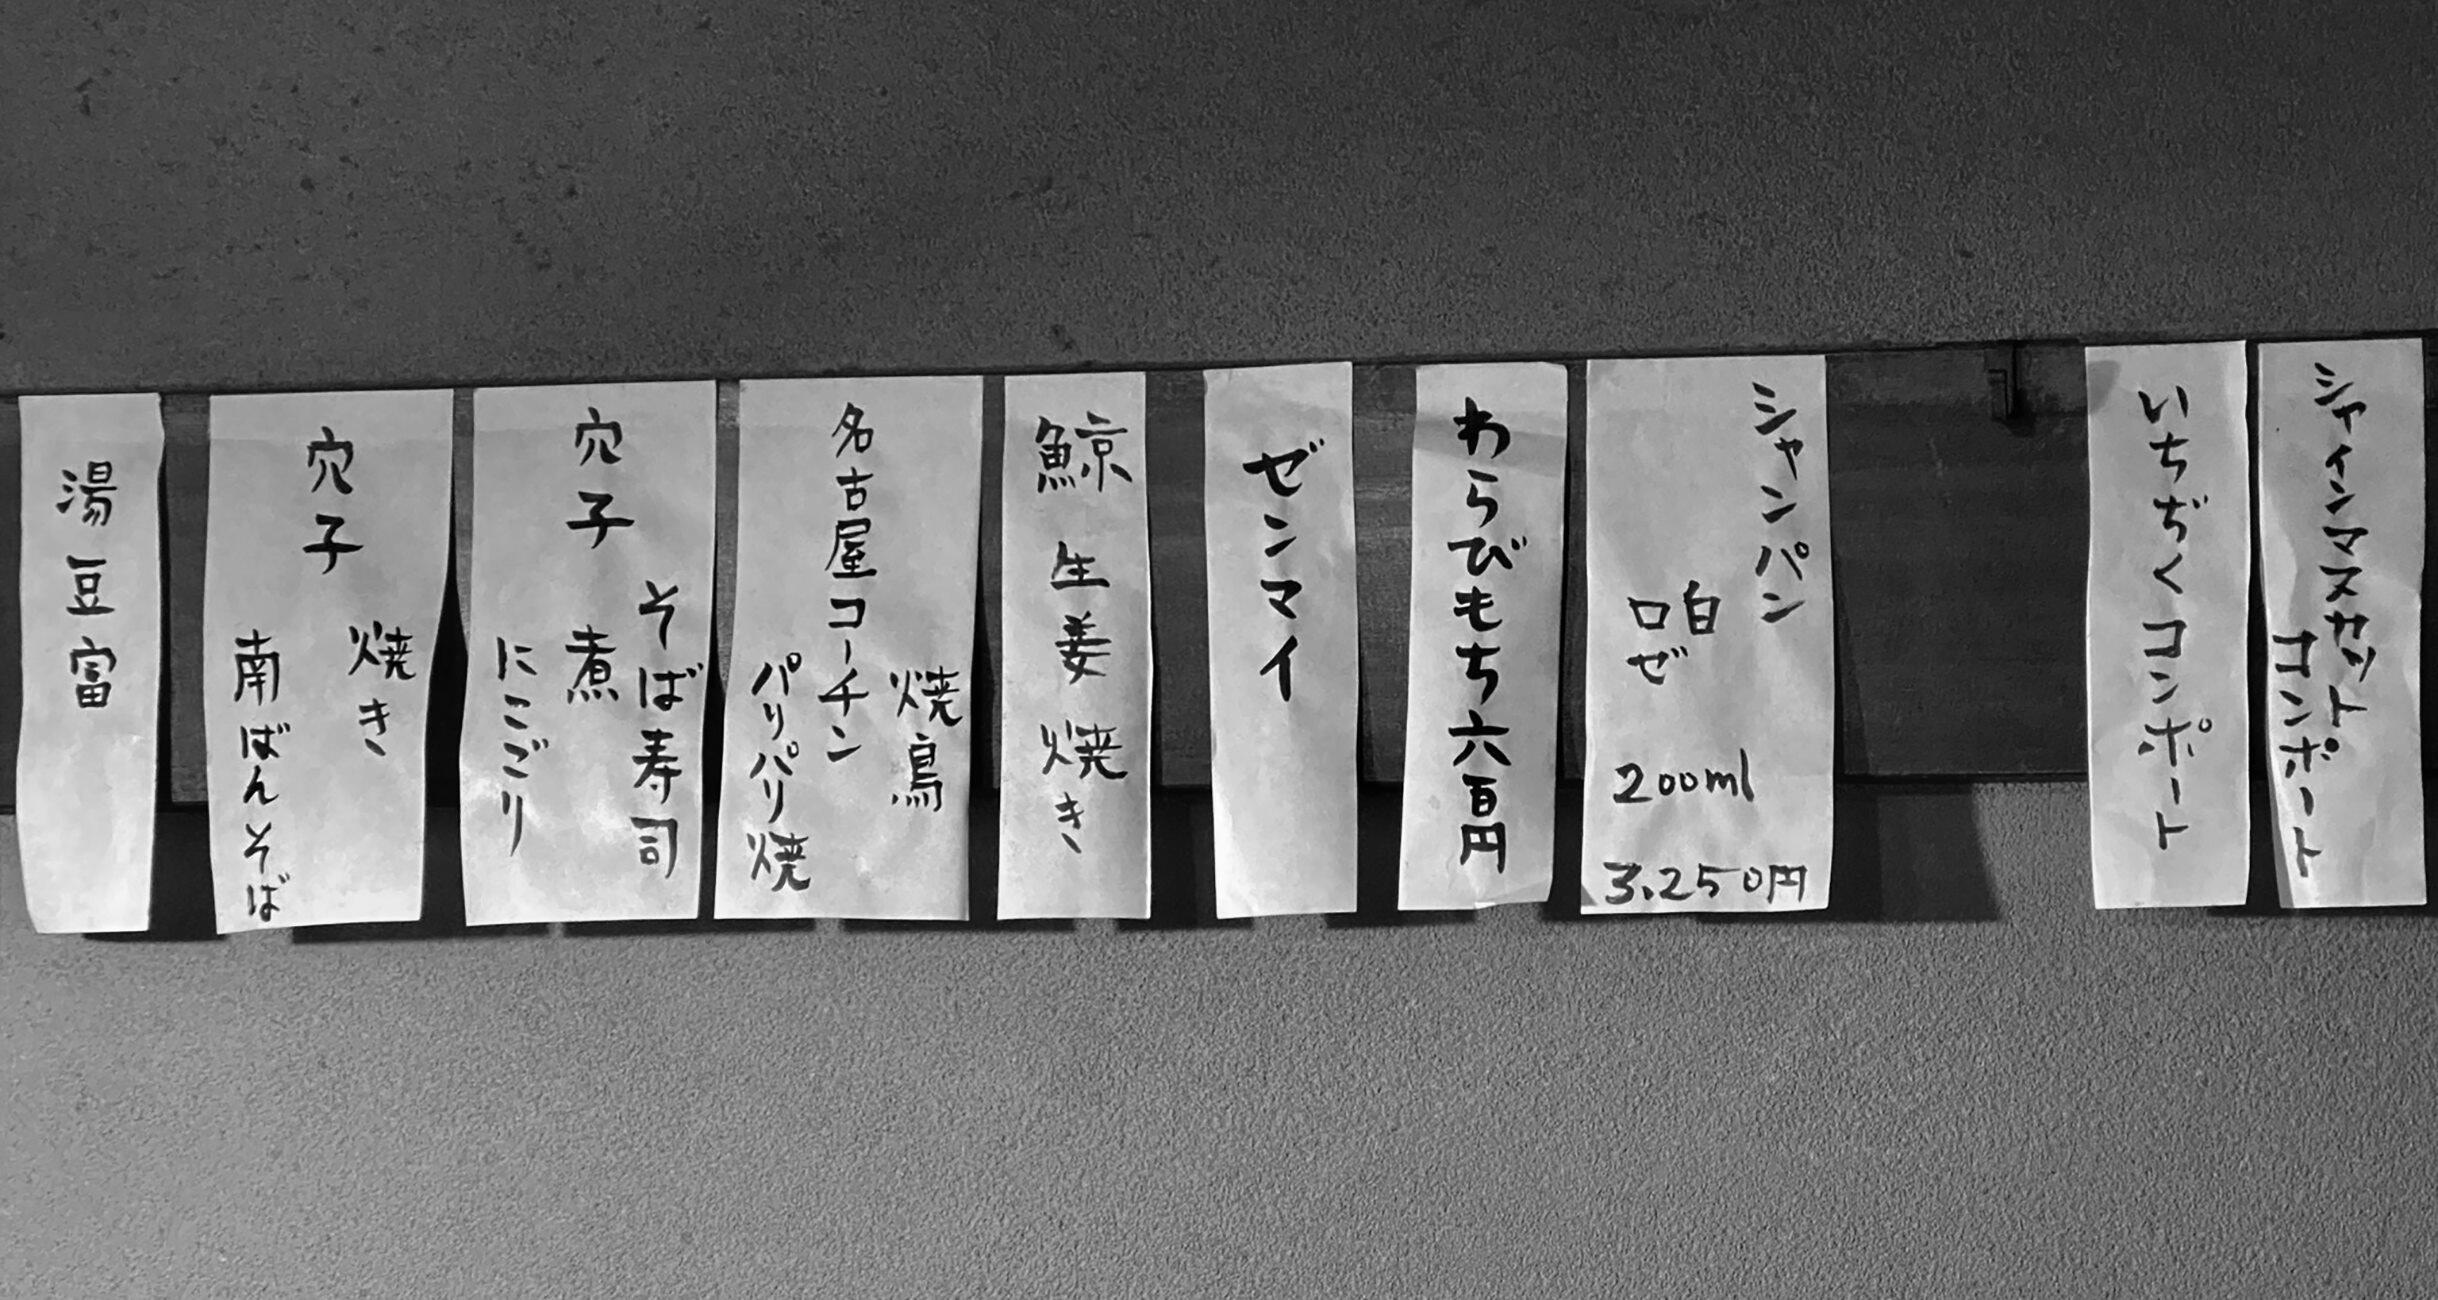 シャインマスカット
コンポート
いちぢくコンポート
シャンパン
白
ロゼ
200ml
3.250円
わらびもち六百円
ゼンマイ
鯨生姜焼き
名古屋コーチン
焼鳥
パリパリ焼
穴子
そば寿司
煮
にこごり
穴子
焼き
南ばんそば
湯豆富